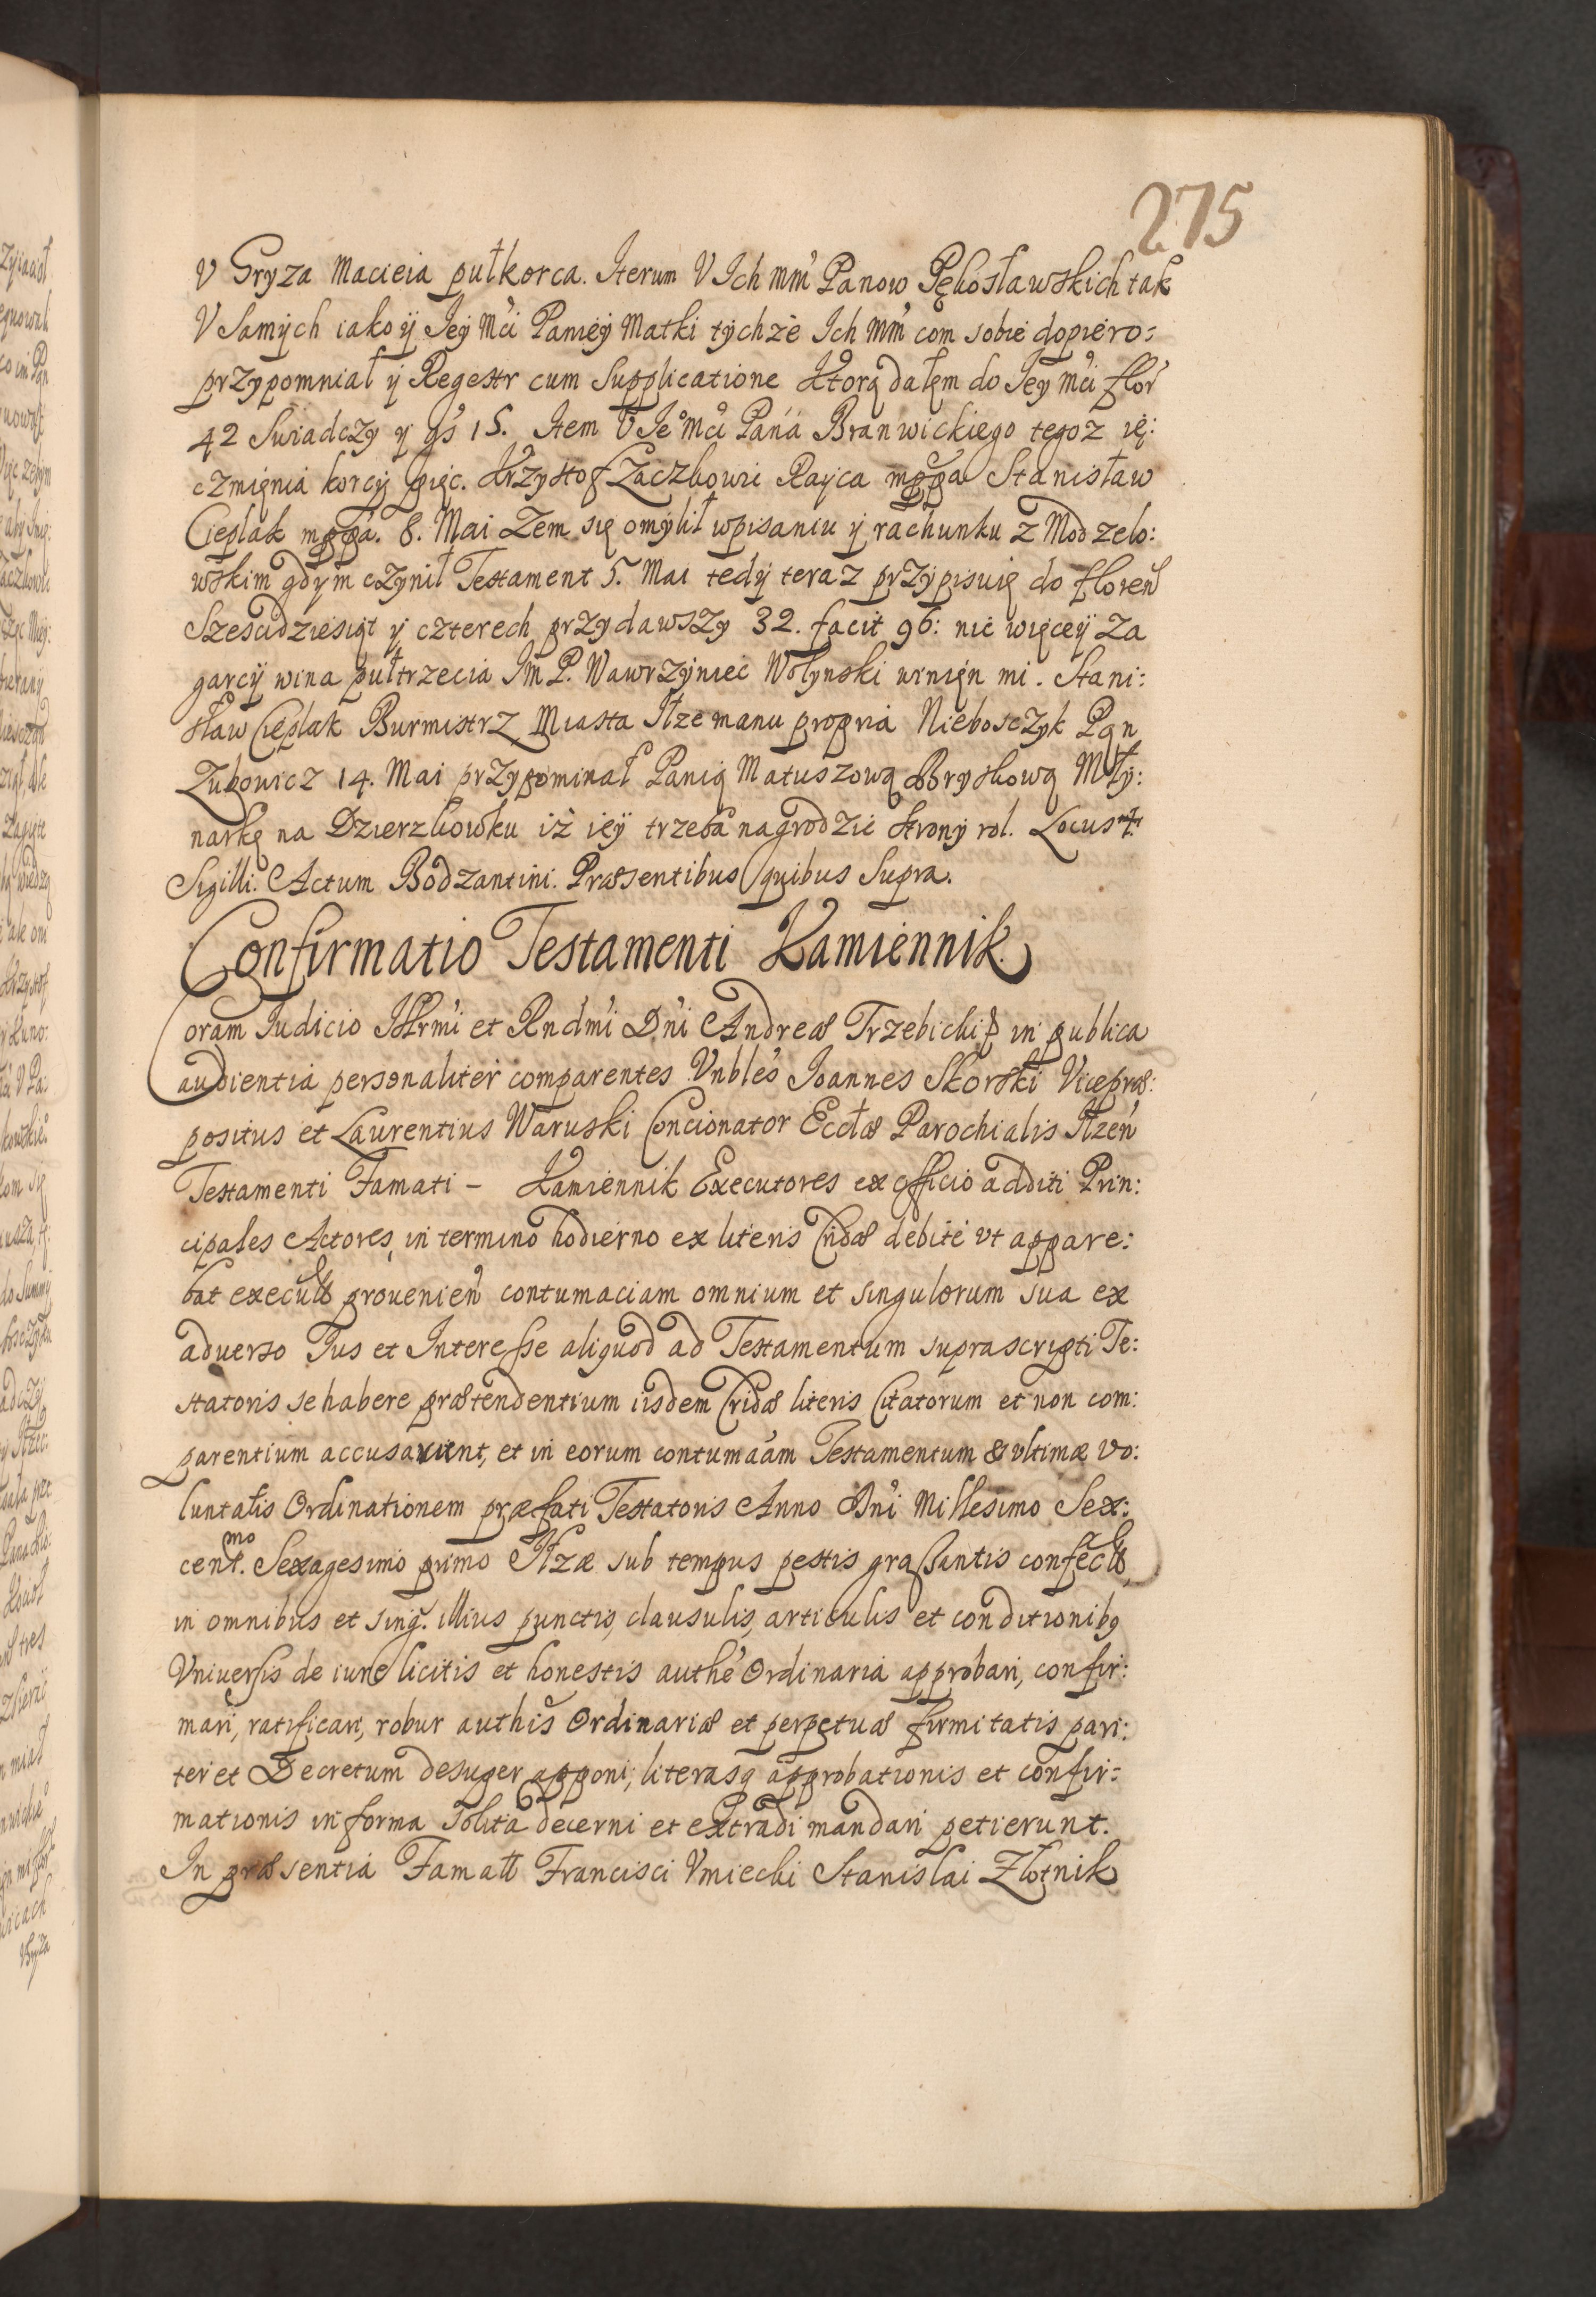 275
V Gryza Macieia pułkorca. Iterum V Ich Mm Panow Pękosławskich tak
V Samych iako ÿ Jeÿ Mći Panieÿ Matki tÿchże Ich Mm com sobie dopiero:
przypomniał ÿ Regestr cum Supplicatione Ktorą dałęm do Jey Mći flor
42 Swiadczy y gs 15. Item V Je° Mći Pana Branwickiego tegoz ię:
czmięnia korcÿ pięc. Krzysztof Zaczkowic Raÿca mppa Stanisław
Cieplak mppa. 8. Mai Zem się omÿlił wpisaniu ÿ rachunku z Modzelo:
wskim gdÿm czÿnił Testament 5. Mai tedÿ teraz przÿpisuię do floren
Szescidziesiąt y czterech przydawszy 32. facit 96: nie więceÿ za
garcÿ wina pułtrzecia Im P. Wawrzÿniec Wołynski winięn mi. Stani:
sław Cieplak Burmistrz Miasta Iłze manu propria Nieboszczyk Pąn
Zukowicz 14. Mai przypominał Panią Matuszową Bryskową Młÿ:
narkę na Dzierzkowku iż ieÿ trzeba nagrodzic stronÿ rol. Locus
Sigilli. Actum Bodzantini. Præsentibus quibus Supra.
Confirmatio Testamenti Kamiennik.
Coram Iudicio Illrmi et Rndmi Dni Andreæ Trzebicki in publica
audientia personaliter comparentes Vnbles Ioannes Skorski Vicepræ:
positus et Laurentius Waruski Concionator Eccłæ Parochialis Iłzen
Testamenti Famati – Kamiennik Executores ex officio additi Prin:
cipales Actores, in termino hodierno ex literis Cridæ debitè vt appare:
bat execut provenien contumaciam omnium et singulorum sua ex
aduerso Ius et Interesse aliquod ad Testamentum suprascripti Te:
statoris se habere prætendentium iisdem Cridæ literis Citatorum et non com:
parentium accusarunt, et in eorum contumaam Testamentum & vltimæ vo:
luntatis Ordinationem præfati Testatoris Anno Dni Millesimo Sex:
centmo. Sexagesimo primo Iłzæ sub tempus pestis grassantis confect,
in omnibus et sing. illius punctis, clausulis, articulis et conditionibq
Vniuersis de iure licitis et honestis authe Ordinaria approbari, confir:
mari, ratificari, robur authis Ordinariæ et perpetuæ firmitatis pari:
ter et Decretum desuper apponi, literasq approbationis et confir:
mationis in forma solita decerni et extradi mandari petierunt.
In præsentia Famatt Francisci Vmiecki Stanislai Złotnik